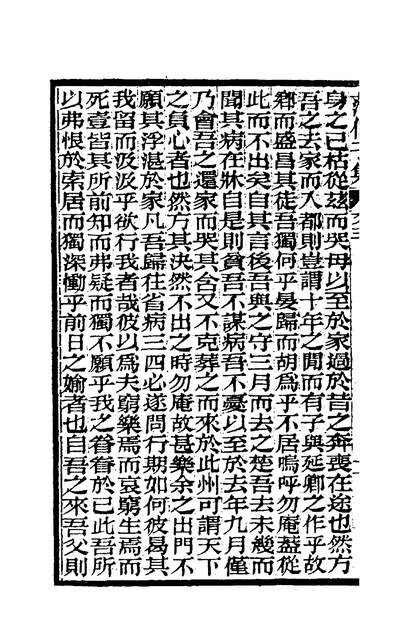 身之已枯從茲而哭母以至於家過於昔之奔喪在途也然方
吾之去家而入都則豈謂十年之閒而有子與延卿之作乎故
鄉而盛昌其徒吾獨何乎晏歸而胡爲乎不居嗚呼勿庵葢從
此而不出矣自其言後吾與之守三月而去之楚吾去未幾而
聞其病在牀自是則貧吾不謀病吾不憂以至於去年九月僅
乃會吾之還家而哭其含又不克葬之而來於此州可謂天下
之負心者也然方其決然不出之時勿庵故甚樂余之出門不
願其浮湛於家凡吾歸往省病三四必遂問行期如何彼曷其
我留而汲汲乎欲行我者哉彼以爲夫窮樂焉而哀窮生焉而
死壹皆其所前知而弗疑而獨不願乎我之眷眷於已此吾所
以弗恨於索居而獨深慟乎前日之婾者也自吾之來吾父則